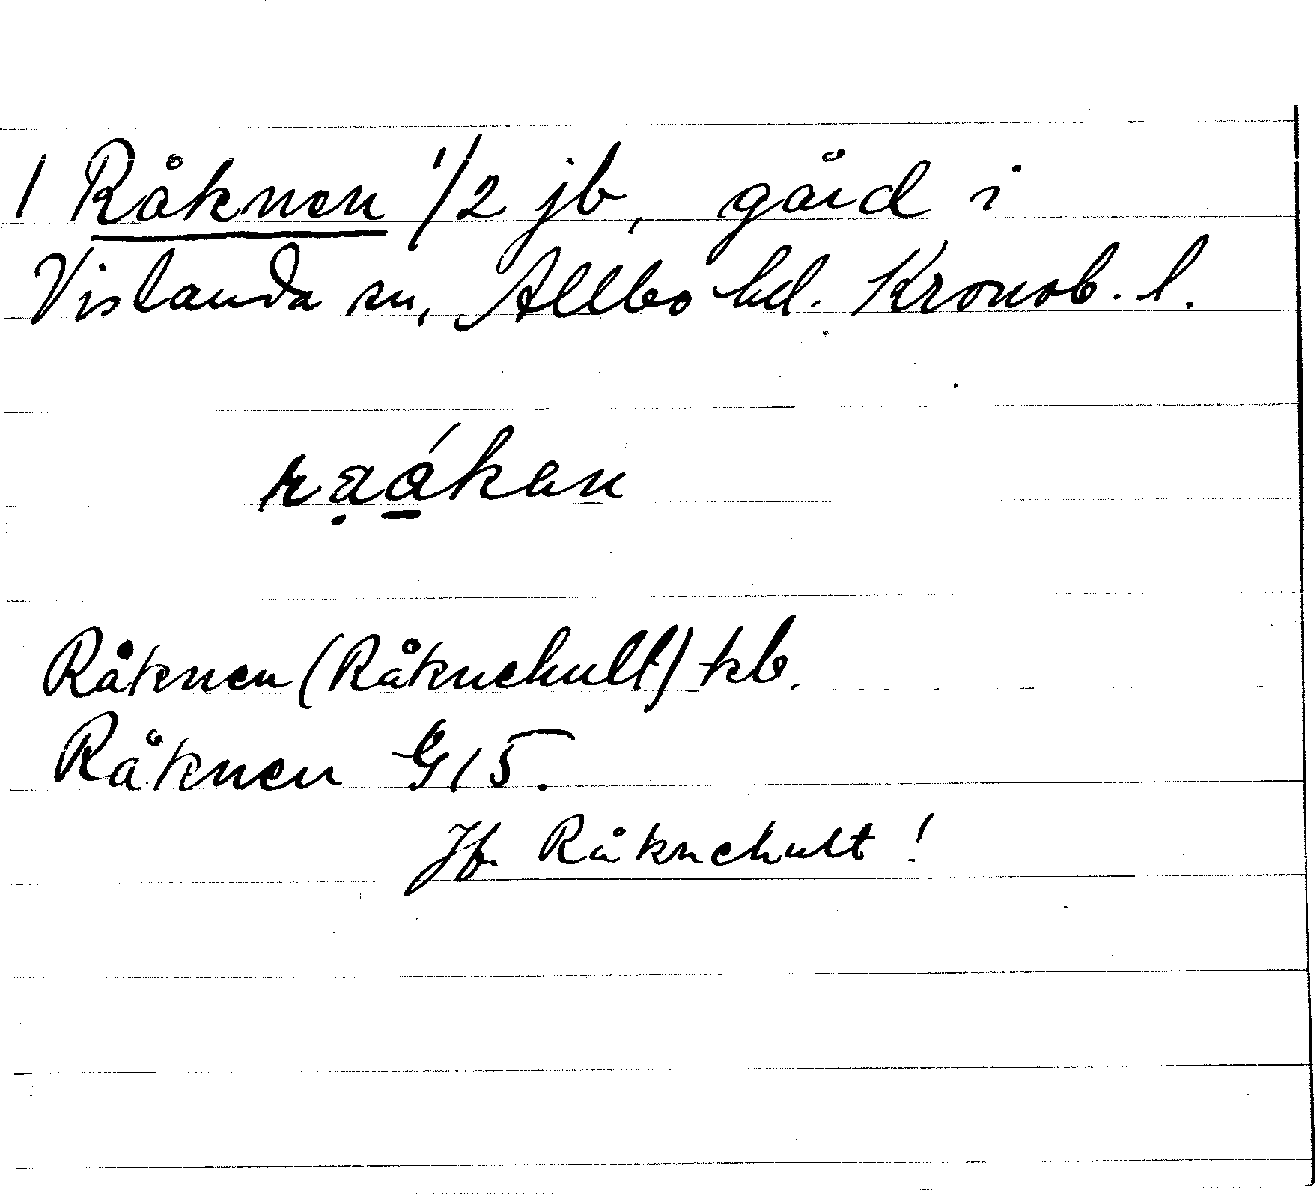 1 Råknen 1/2 jb, gård i
Vislanda sn, Allbo hd. Kronob. l.
Råknen (Råknehult) kb.
Råknen G15.
Jfr Råknehult!